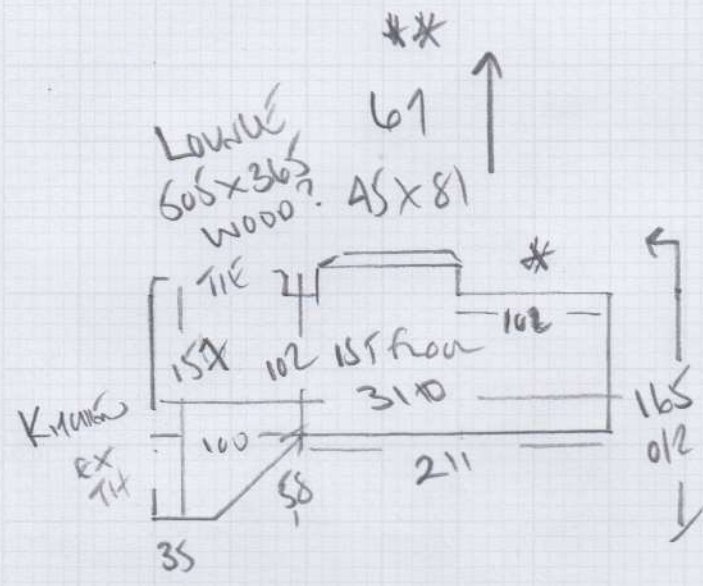 **
61
LOUNGE
605 X 365
WOOD?
45 X 81
*
TIE
102
157
102
1ST floor
3110
165
012
KITCHEN
EX
TH
100
58
211
35